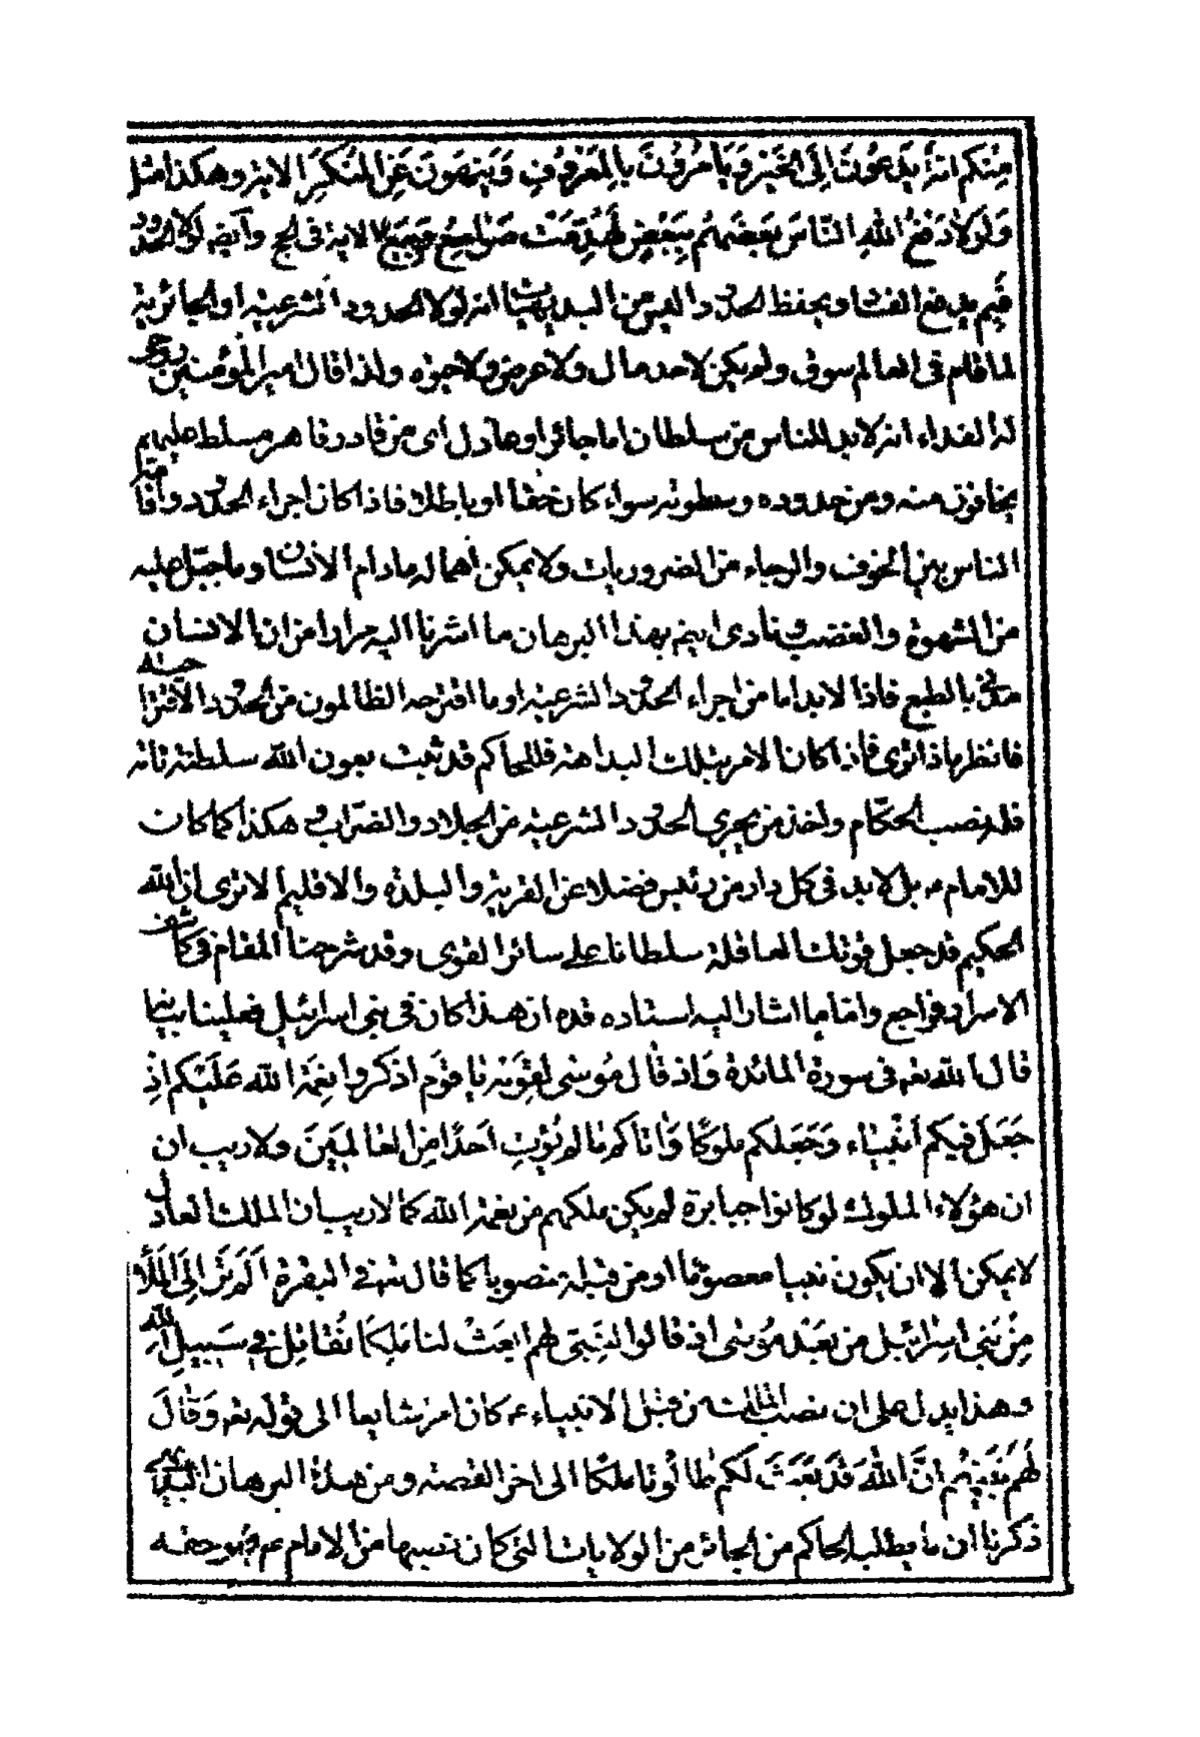 مِنْكم امّة يَدعُونَ اِلَى الخَيْرِ وَيَأمُرُونَ بالمَعْرُوفِ وَيَنهَونَ عَنِ المُنكَرِ الاية وهكذا مثل
وَلَولا دَفعُ اللهِ النّاسَ بَعضَهُم بِبَعْضٍ لَهُدّمَتْ صَوامِعُ وَبِيَعٌ الاية في الحج وايضا لولا الحدود
فبم يدفع الفساد ويحفظ الحدود اليس من البديهيات انه لولا الحدود الشرعية او الجائرية
لما قام في العالم سوق ولم يكن لاحد مال ولا عرض ولا حيوة ولذا قال امير المؤمنين روحي
له الفداء انه لابد للناس من سلطان اما جائر او عادل اي من قادر قاهر مسلط عليهم
يخافون منه ومن حدوده وسطوته سواء كان حقا او باطلا فاذا كان اجراء الحدود واقامة
الناس بين الخوف والرجاء من الضروريات ولا يمكن اهماله مادام الانسان وما جبل عليه
من الشهوة والغضب فنادى ايضا بهذا البرهان ما اشرنا اليه مرارا من ان الانسان
مدني بالطبع فاذا لابد اما من اجراء الحدود الشرعية او ما اقترحه الظالمون من الحدود الاقتراحية
فانظر ماذا ترى فاذا كان الامر بتلك البداهة فللحاكم قد ثبت بعون الله سلطنة تامة
فله نصب الحكام واخذ من يجري الحدود الشرعية من الجلاد والضراب وهكذا كما كان
للامام ع بل لابد في كل دار من رئيس فضلا عن القرية والبلدة والاقليم الا ترى ان الله
الحكيم قد جعل قوتك العاقلة سلطانا على سائر القوى وقد شرحنا المقام في كاشف
الاسرار فراجع واما ما اشار اليه استاده قده ان هذا كان في بني اسرائيل فعلينا بيانها
قال الله تعه في سورة المائدة وَاذ قال مُوسى لِقَومِه يا قَومِ اذكروا نِعمَة الله عَلَيْكم اِذ
جَعَلَ فيكم أنبياء وَجَعَلكم ملوكًا وَاتاكم ما لم يُؤتِ اَحَدًا مِنَ العالَمينَ ولا ريب ان
ان هؤلاء الملوك لو كانوا جبابرة لم يكن ملكهم من نعمة الله كما لا ريب ان الملك العادل
لا يمكن الا ان يكون نبيا معصوما او من قبله منصوبا كما قال تعه في البقرة اَلَم تَرَ اِلَى المَلَأِ
مِنْ بَني اسرائيل من بَعْد مُوسى اذ قالوا لِنَبيٍّ لهم ابعَثْ لنا مَلِكًا نُقاتِل في سَبيلِ الله
وهذا يدل على ان نصب الملك من قبل الانبياء ع كان امرا شايعا الى قوله تعه وَقالَ
لَهُم نَبِيُّهُم اِنَّ اللهَ قَد بَعَثَ لَكم طالُوتَ مَلِكًا الى اخر القصة ومن هذا البرهان البديهي
ذكرنا ان ما يطلب الحاكم من الجائر من الولايات التي كان نصبها من الامام ع فهو حقه